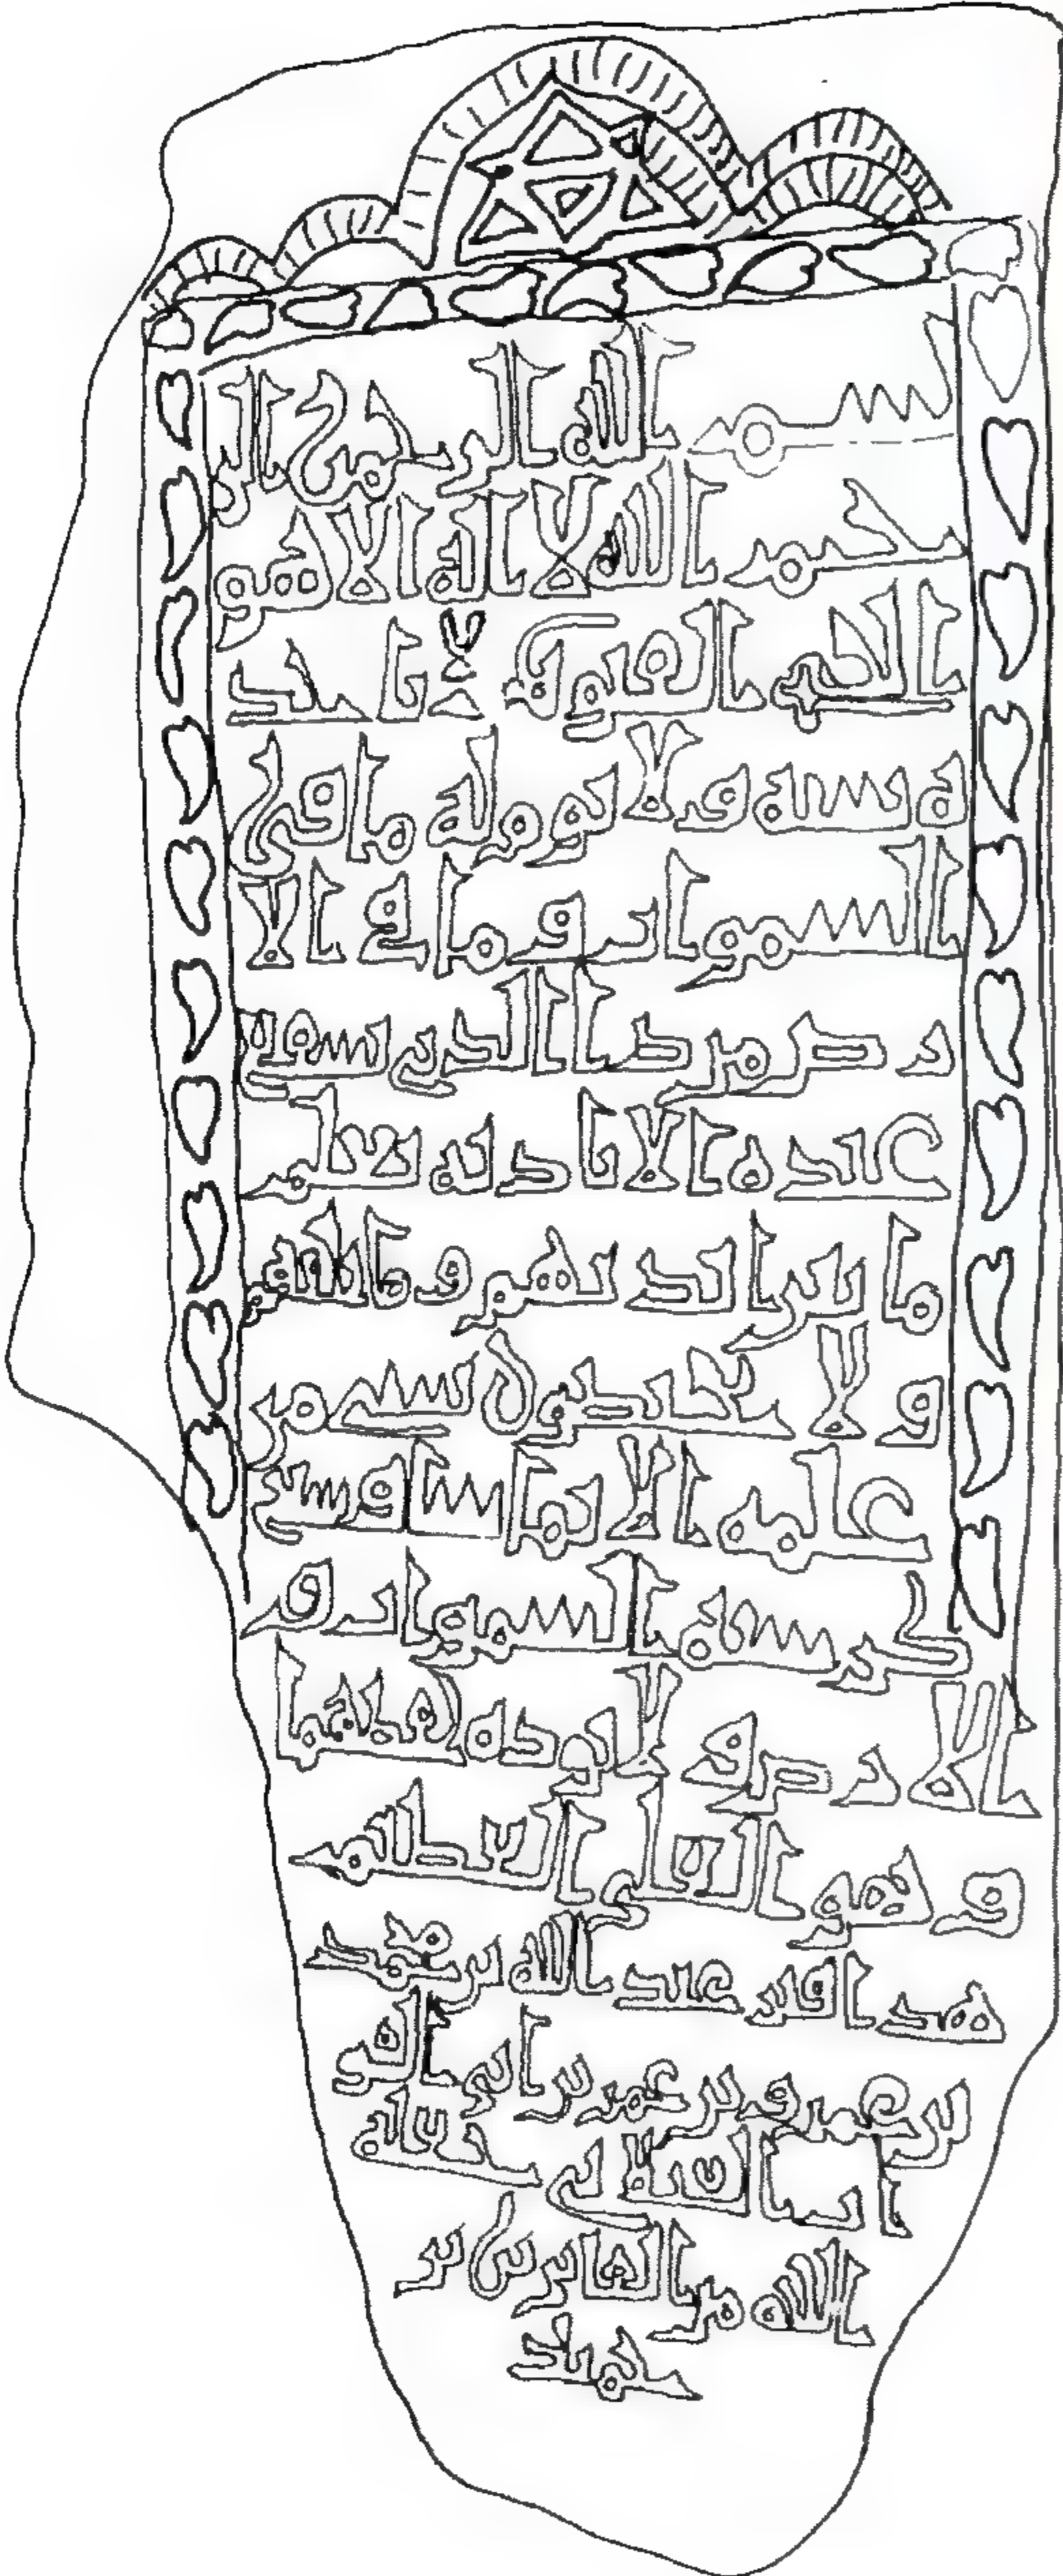 بسم الله الرحمن الر
حيم الله لا اله الا هو
الحي القيوم لا تاخذ
ه سنة ولا نوم له ما في
السموات وما في الا
رض من ذا الذي يشفع
عنده الا باذنه يعلم
ما بين ايديهم وما خلفهم
ولا يحيطون بشي من
علمه الا بما شا وسع
كرسيه السموات و
الارض ولا يوده حفظهما
وهو العلي العظيم
هذا قبر عبد الله بن محمد
بن عمرو بن عمر بن ابي
الله من